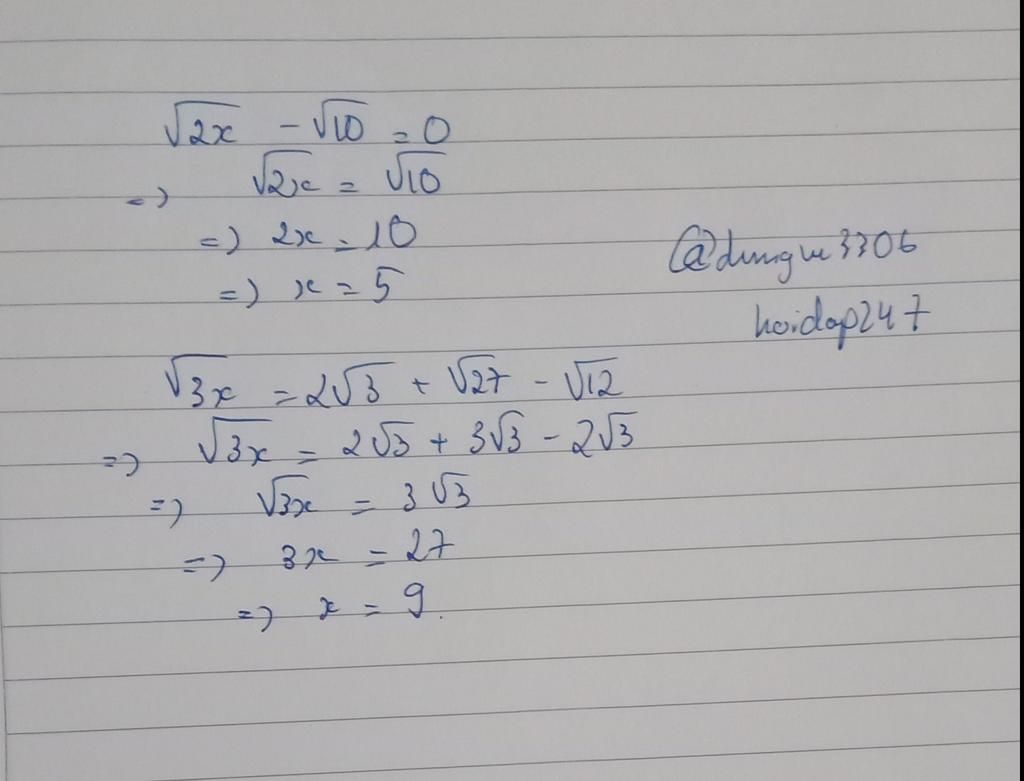 √2x - √10 = 0
=> √2x = √10
=> 2x = 10
=> x = 5
@dungvu3306
hoidap247
√3x = 2√3 + √27 - √12
=> √3x = 2√3 + 3√3 - 2√3
=> √3x = 3√3
=> 3x = 27
=> x = 9.